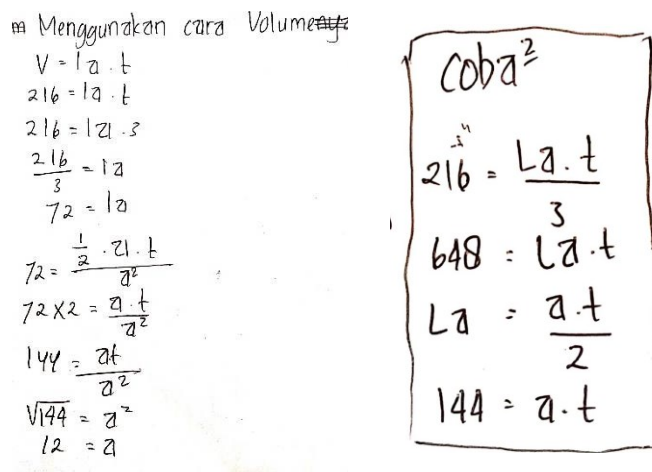 Menggunakan cara Volume
V = la . t
216 = la . t
216 = la . 3
216/3 = la
72 = la
72 = 1/2 . a . t / a²
72 x 2 = a . t / a²
144 = at / a²
√144 = a²
12 = a
coba²
216 = La . t / 3
648 = La . t
La = a . t / 2
144 = a . t